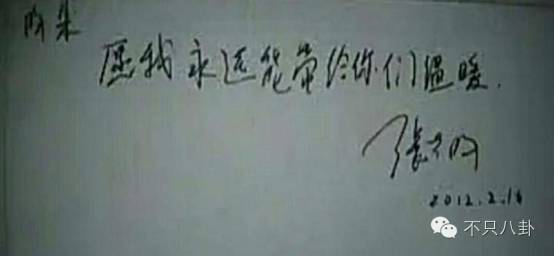 愿我永远能带给你们温暖.
张
2012.2.16
不只八卦